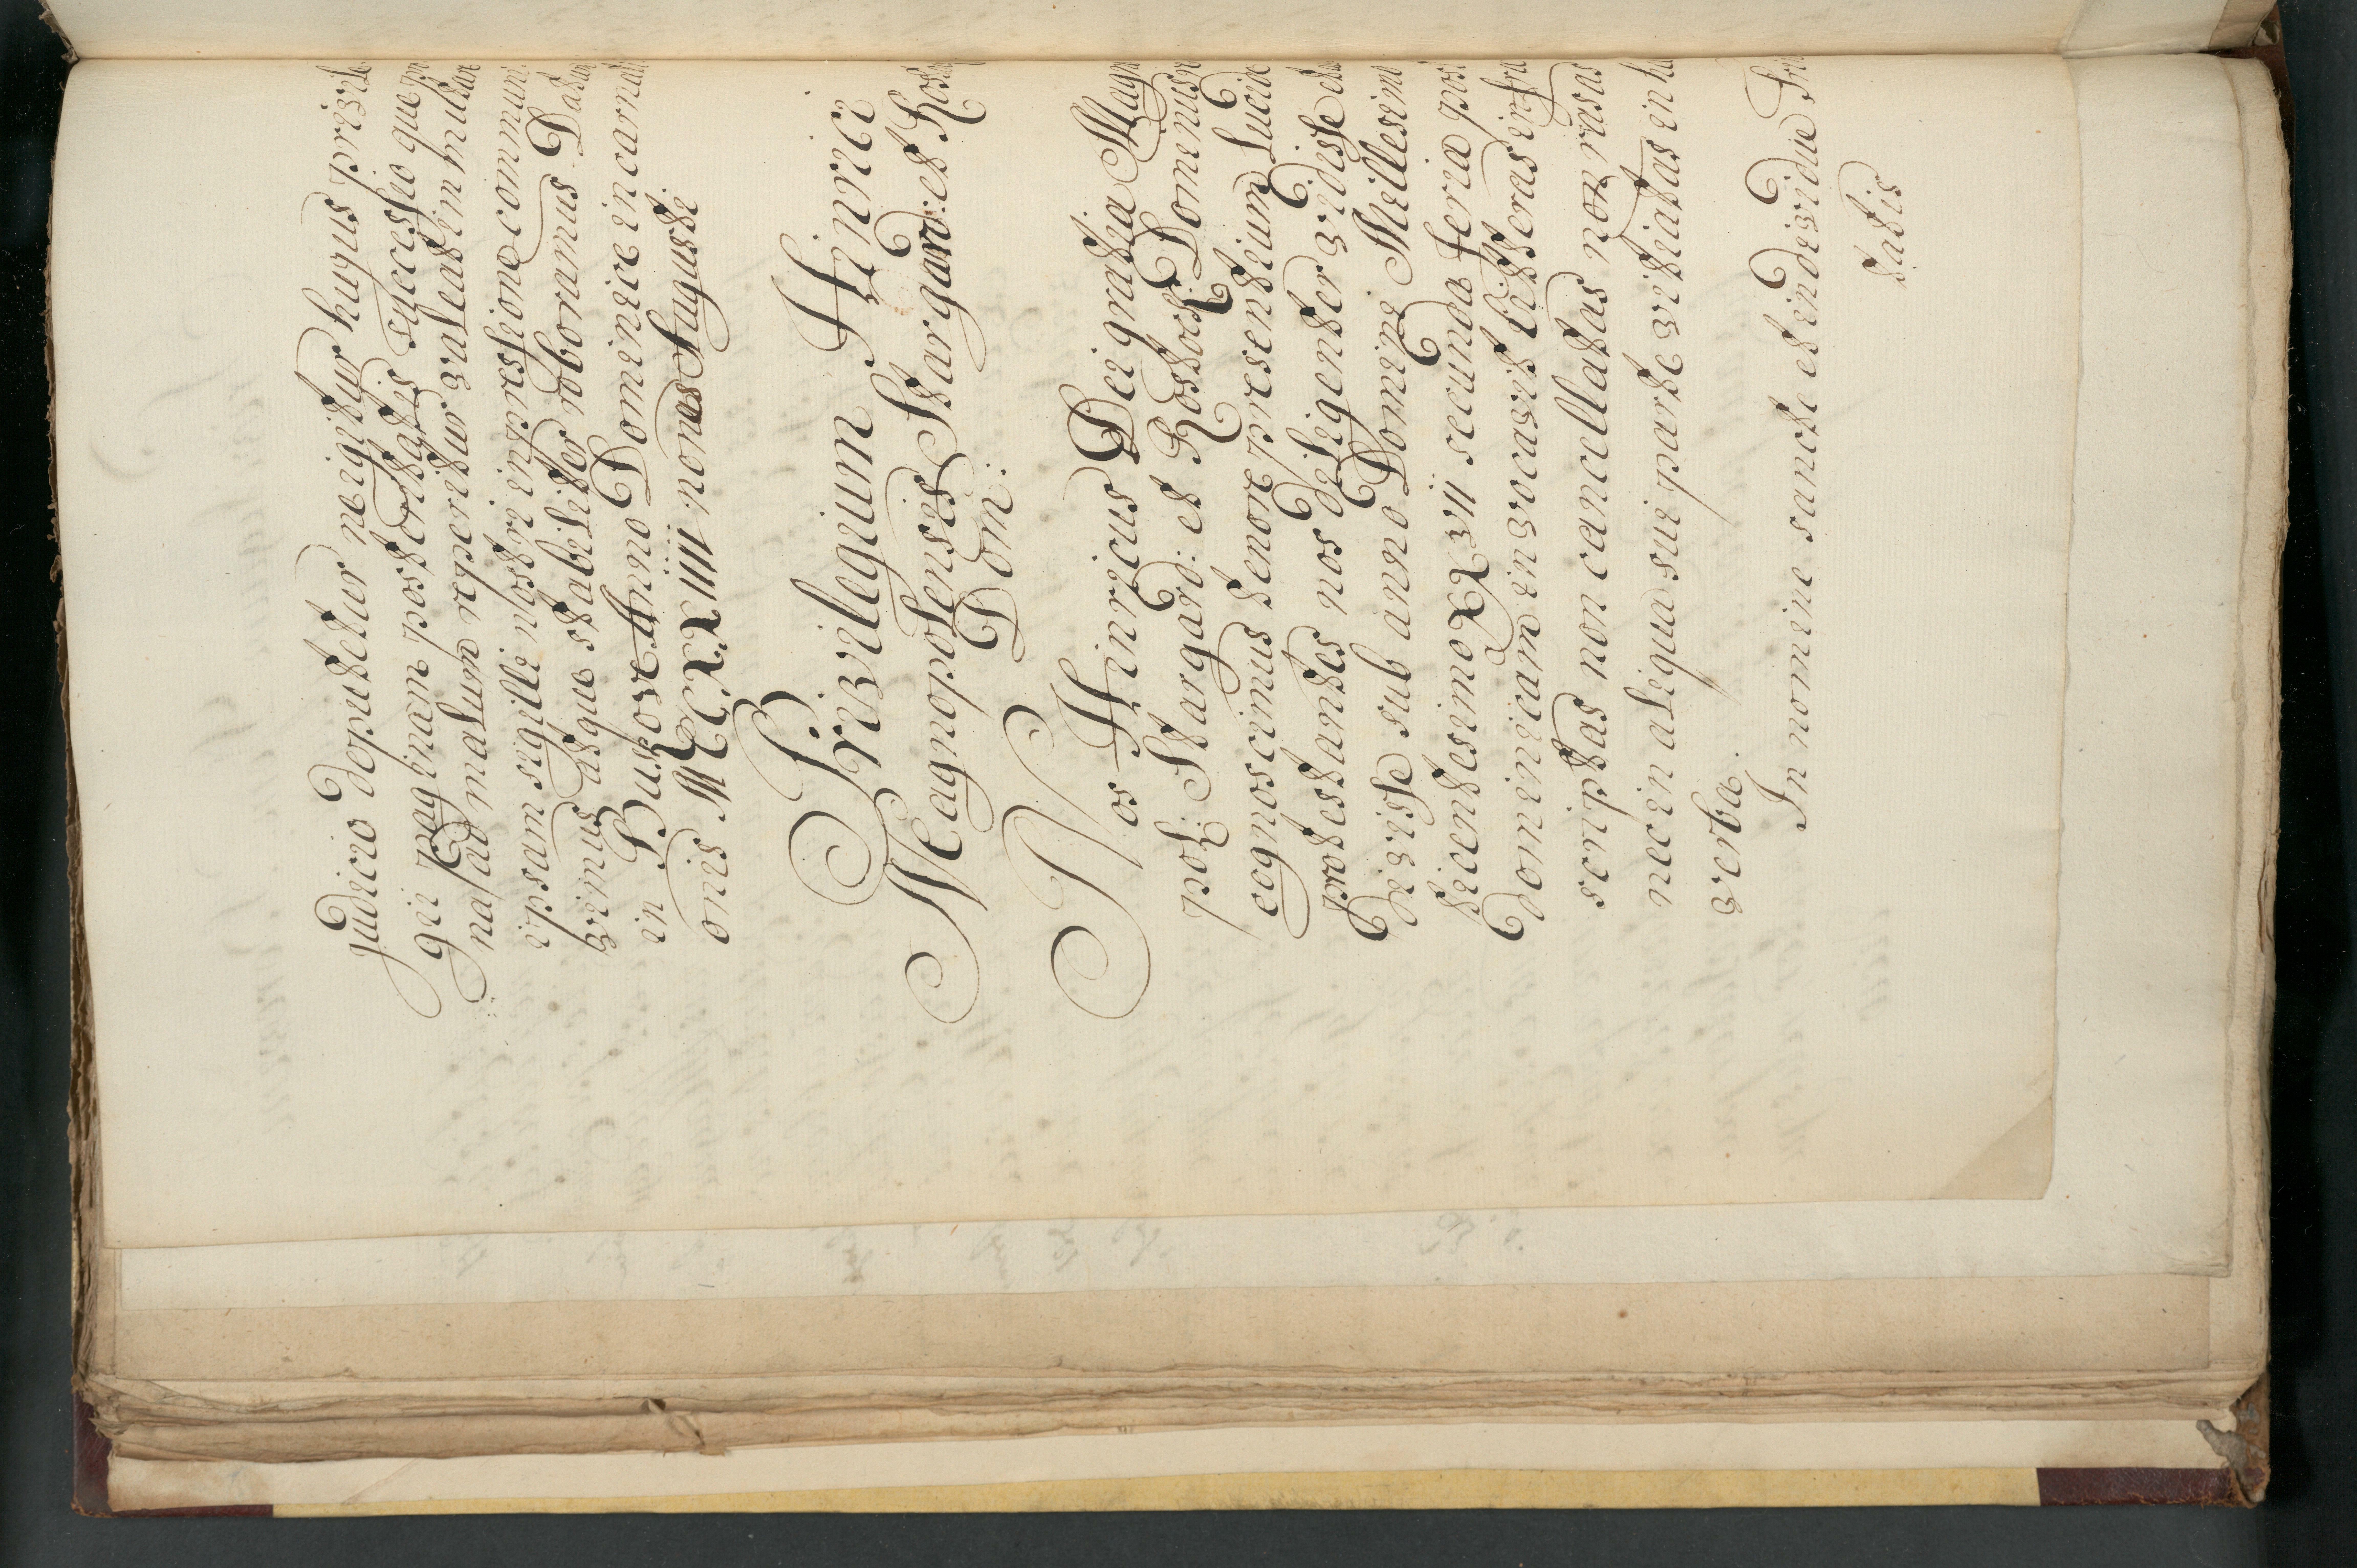 judicio deputetur neigitur hugus privile
gii paginam posteritatis successio que po
nas ad malum reperitur valeat immutare
ipsam sigilli nostri impressione commun
vimus atque stabiliter roboramus Datum
in Butzow Anno Dominice incarnati
onis MCCXXXIIII nonas Auguste.
Privilegium Hinrici
Magnopolensis Stargard: et Rost
Dom:
Nos Hinricus Dei gratia Magno
pol: Stargard: et Rostock Dominus re
cognoscimus tenore presentium Lucide
protestantes nos deligenter vidisse et au
divisse sub anno Domini Millesimo
tricentesimo XXVII secunda feria post
dominicam invocavit litteras infra
scriptas non cancellatas non rasas
nec in aliqua sui parte vitiatas in hæ
verba.
In nomine sancte et individue Tri
tatis